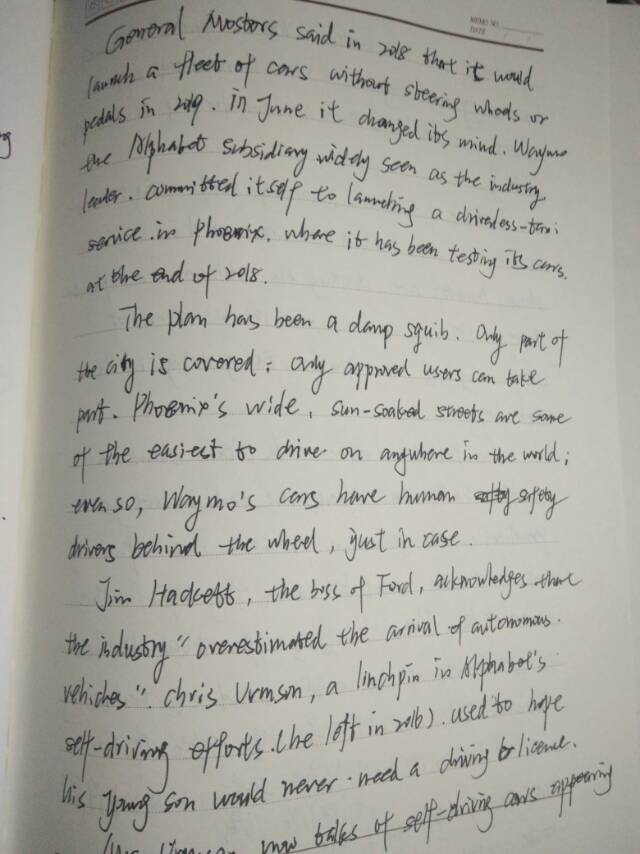 MEMO NO.
DATE
General Mostors said in 2018 that it would
launch a fleet of cars without steering wheels or
pedals in 2019. in June it changed its mind. Waymo
the Alphabet subsidiary widely seen as the industry
leader. committed itself to launching a driverless-taxi
service in Phoenix, where it has been testing its cars.
at the end of 2018.
The plan has been a damp squib. Only part of
the city is covered; only approved users can take
part. Phoenix's wide, sun-soaked streets are some
of the easiest to drive on anywhere in the world;
even so, Waymo's cars have human safety
drivers behind the wheel, just in case.
Jim Hackett, the boss of Ford, acknowledges that
the industry "overestimated the arrival of autonomous
vehicles". Chris Urmson, a linchpin in Alphabet's
self-driving efforts. (he left in 2016). used to hope
his young son would never need a driving licence.
now talks of self-driving cars appearing